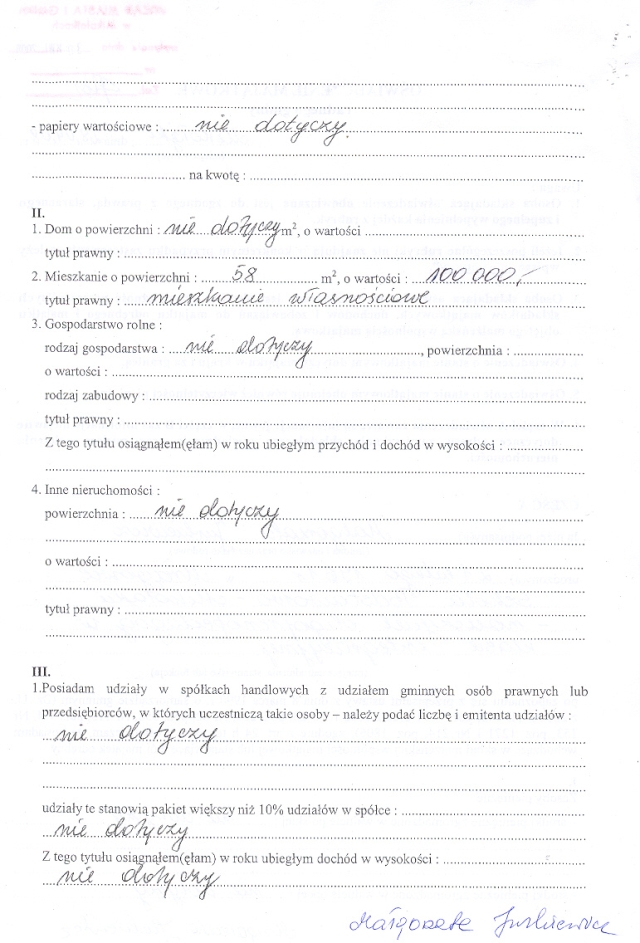 - papiery wartościowe : nie dotyczy.
na kwotę :
II.
1. Dom o powierzchni : nie dotyczy m², o wartości
tytuł prawny :
2. Mieszkanie o powierzchni : 58 m², o wartości : 100 000,-
tytuł prawny : mieszkanie własnościowe
3. Gospodarstwo rolne :
rodzaj gospodarstwa : nie dotyczy , powierzchnia :
o wartości :
rodzaj zabudowy :
tytuł prawny :
Z tego tytułu osiągnąłem(ęłam) w roku ubiegłym przychód i dochód w wysokości :
4. Inne nieruchomości :
powierzchnia : nie dotyczy
o wartości :
tytuł prawny :
III.
1.Posiadam udziały w spółkach handlowych z udziałem gminnych osób prawnych lub
przedsiębiorców, w których uczestniczą takie osoby – należy podać liczbę i emitenta udziałów :
nie dotyczy
udziały te stanowią pakiet większy niż 10% udziałów w spółce :
nie dotyczy
Z tego tytułu osiągnąłem(ęłam) w roku ubiegłym dochód w wysokości :
nie dotyczy
Małgorzata